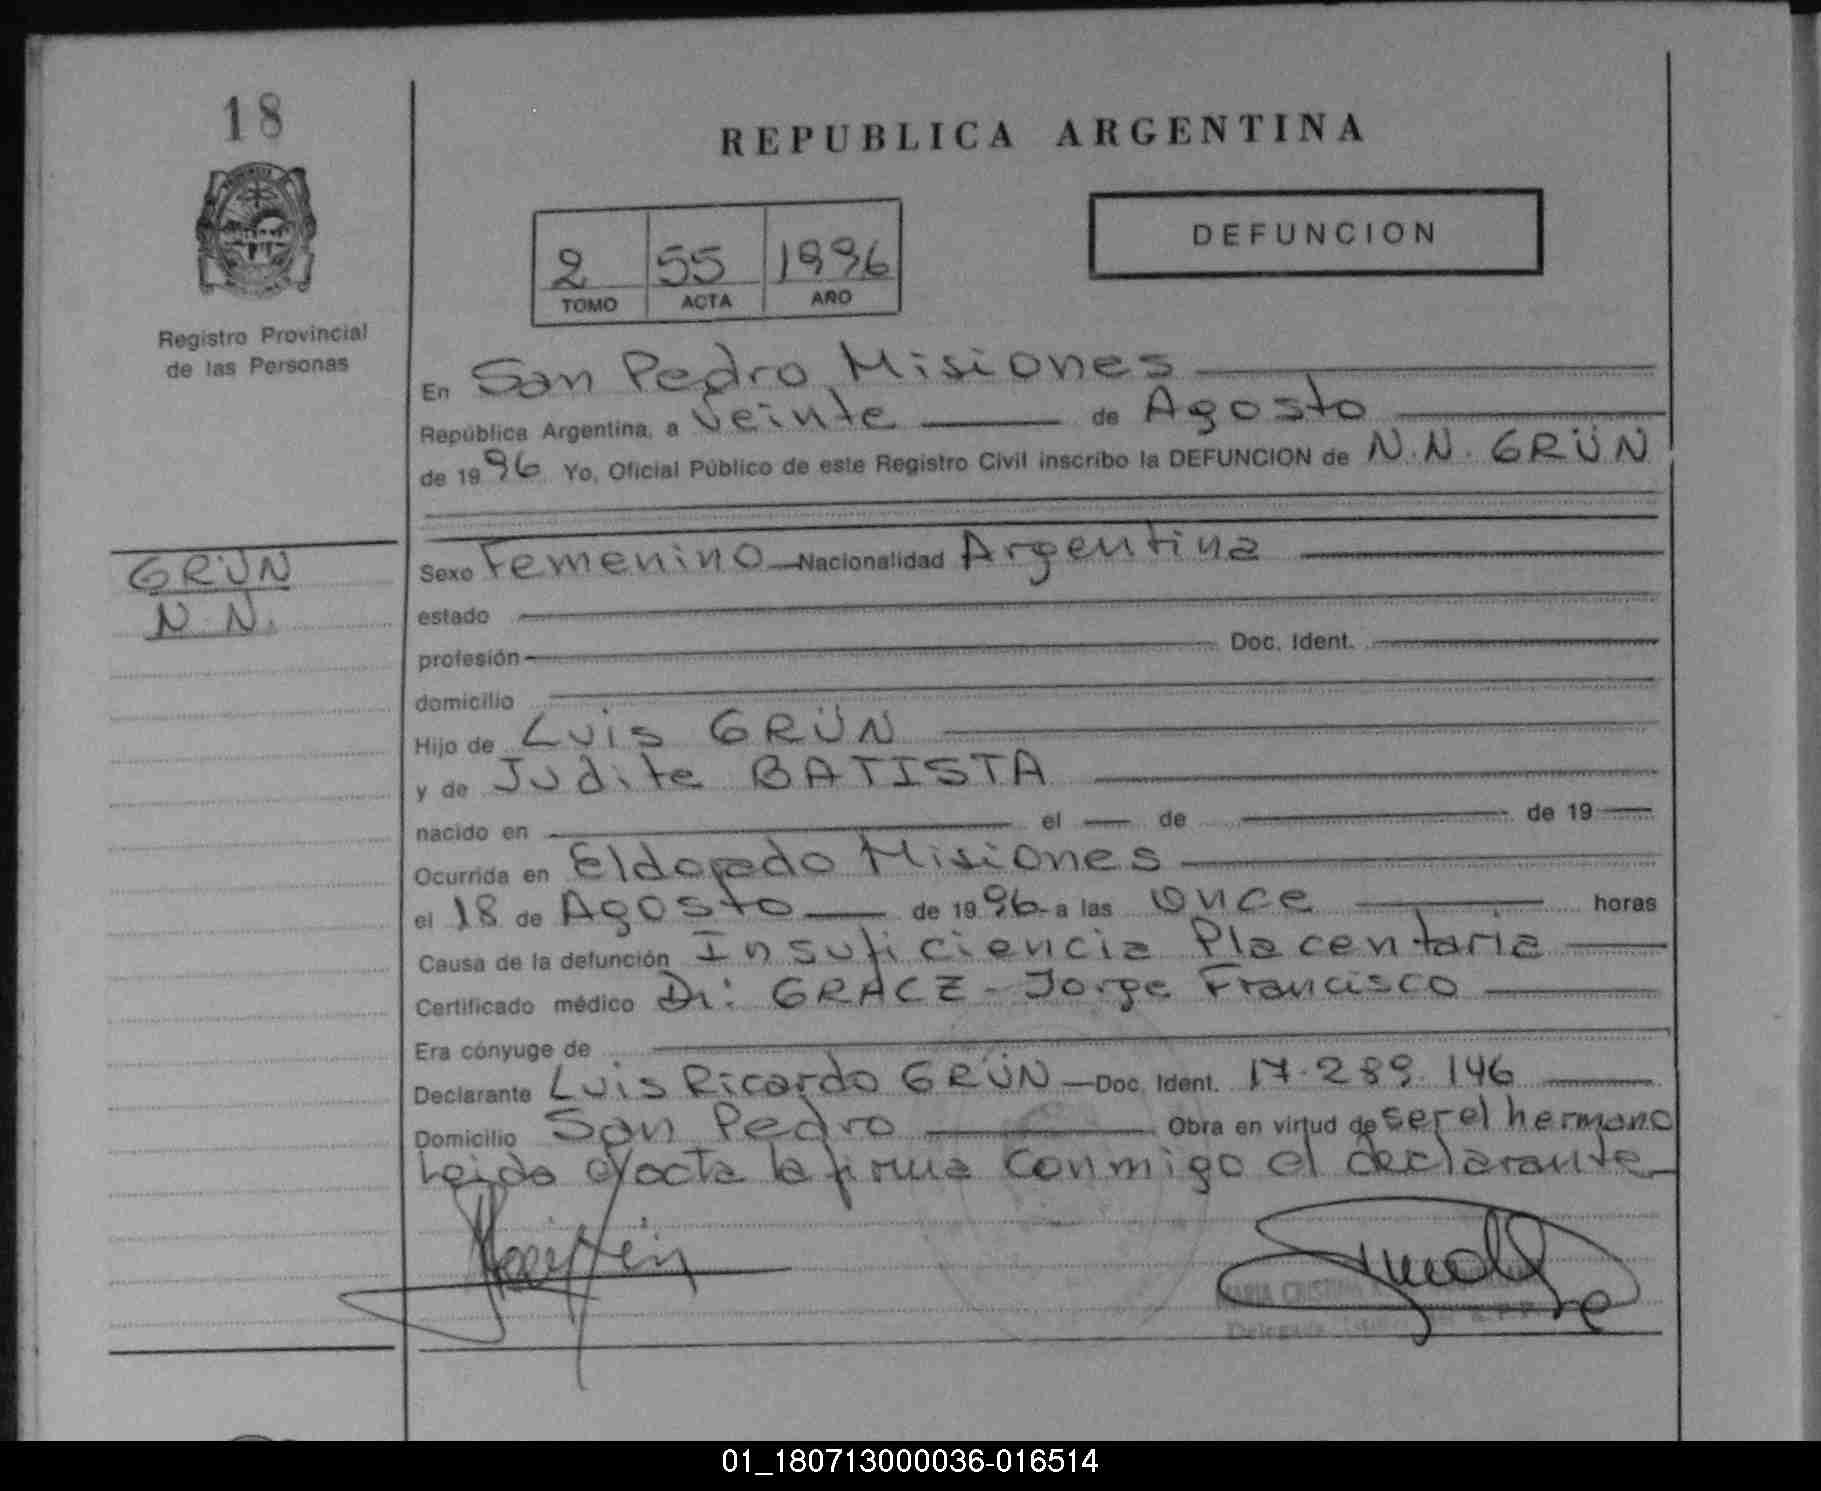 18
REPUBLICA ARGENTINA
DEFUNCION
2 55 1996
TOMO ACTA AÑO
Registro Provincial
de las Personas
En San Pedro Misiones
República Argentina, a Veinte de Agosto
de 1996 Yo, Oficial Público de este Registro Civil inscribo la DEFUNCION de N.N. GRÜN
GRÜN
N.N.
Sexo Femenino Nacionalidad Argentina
estado
profesión Doc. Ident.
domicilio
Hijo de Luis GRÜN
y de Judite BATISTA
nacido en el de de 19
Ocurrida en Eldorado Misiones
el 18 de Agosto de 1996 a las once horas
Causa de la defunción Insuficiencia Placentaria
Certificado médico Dr: GRACZ - Jorge Francisco
Era cónyuge de
Declarante Luis Ricardo GRÜN Doc. Ident. 17.289.146
Domicilio San Pedro Obra en virtud de ser el hermano
Leida el acta la firma conmigo el declarante
MARIA CRISTINA
01_180713000036-016514